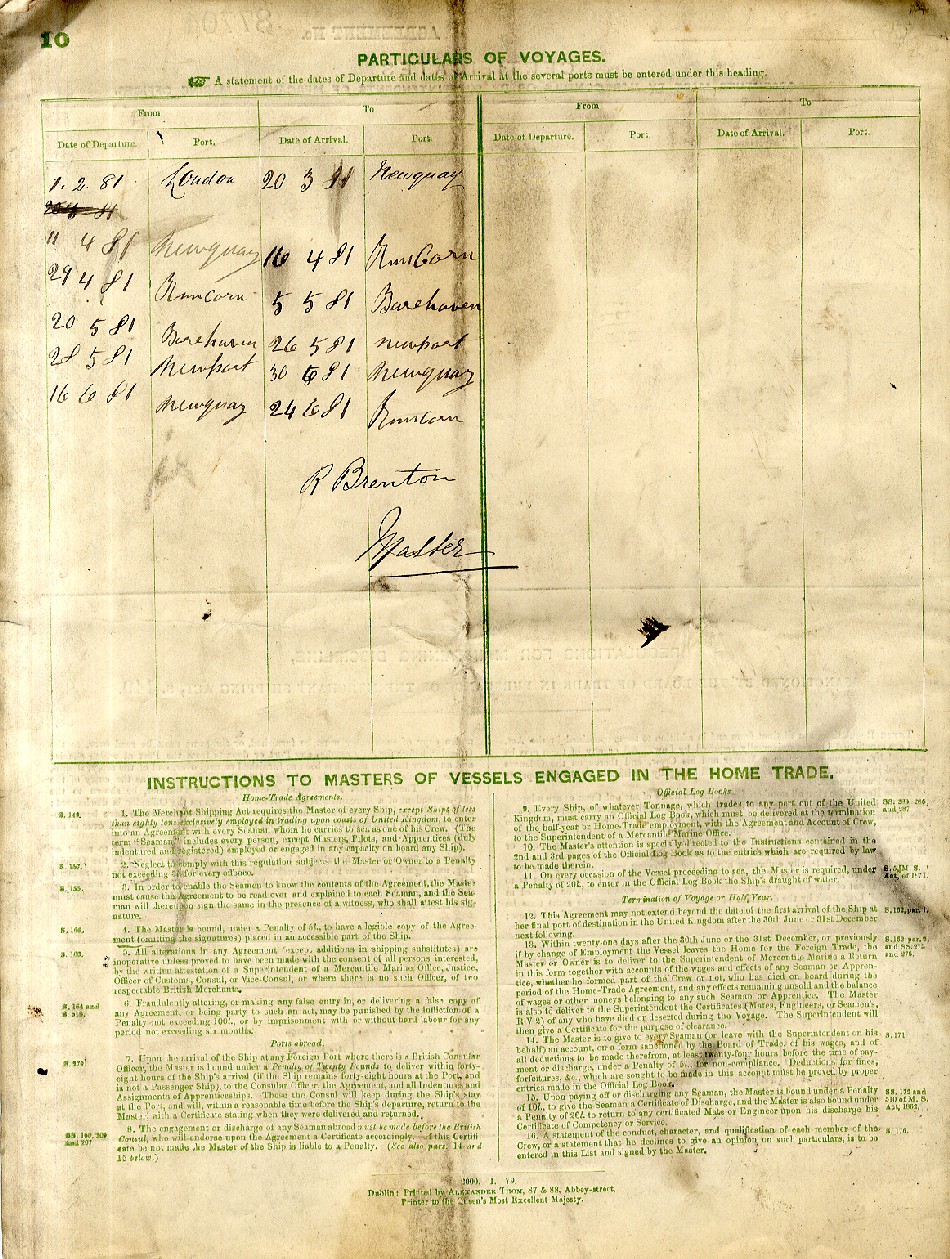 10
PARTICULARS OF VOYAGES.
A statement of the dates of Departure and dates of Arrival at the several ports must be entered under this heading.
From To From To
Date of Departure. Port. Date of Arrival. Port. Date of Departure. Port. Date of Arrival. Port.
1. 2. 81 London 20 3 81 Newquay
11 4 81 Newquay 16 4 81 Runcorn
29 4 81 Runcorn 5 5 81 Barehaven
20 5 81 Barehaven 26 5 81 newport
28 5 81 Newport 30 6 81 Newquay
16 6 81 Newquay 24 6 81 Runcorn
R Brenton
Master
INSTRUCTIONS TO MASTERS OF VESSELS ENGAGED IN THE HOME TRADE.
Home-Trade Agreements.
S. 149. 1. The Merchant Shipping Act requires the Master of every Ship, except Ships of less
than eighty tons exclusively employed in trading upon coasts of United Kingdom, to enter
into an Agreement with every Seaman whom he carries to sea as one of his Crew. (The
term "Seaman" includes every person, except Masters, Pilots, and Apprentices (duly
indentured and registered) employed or engaged in any capacity on board any Ship).
S. 157. 2. Neglect to comply with this regulation subjects the Master or Owner to a Penalty
not exceeding £5 for every offence.
S. 155. 3. In order to enable the Seamen to know the contents of the Agreement, the Master
must cause the Agreement to be read over and explained to each Seaman, and the Sea-
man will thereupon sign the same in the presence of a witness, who shall attest his sig-
nature.
S. 166. 4. The Master is bound, under a Penalty of 5l., to have a legible copy of the Agree-
ment (omitting the signatures) placed in an accessible part of the Ship.
S. 163. 5. All alterations in any Agreement (except additions in shipping substitutes) are
inoperative unless proved to have been made with the consent of all persons interested,
by the written attestation of a Superintendent of a Mercantile Marine Office, Justice,
Officer of Customs, Consul, or Vice-Consul, or where there is no such Officer, of two
respectable British Merchants.
S. 164 and 6. Fraudulently altering, or making any false entry in, or delivering a false copy of
any Agreement, or being party to such an act, may be punished by the infliction of a
Penalty not exceeding 100l., or by imprisonment with or without hard labour for any
period not exceeding six months.
Ports abroad.
S. 279 7. Upon the arrival of the Ship at any Foreign Port where there is a British Consular
Officer, the Master is bound under a Penalty of Twenty Pounds to deliver within forty-
eight hours of the Ship's arrival (if the Ship remains forty-eight hours at the Port, and
is not a Passenger Ship), to the Consular Officer, the Agreement, and all Indentures and
Assignments of Apprenticeships. These the Consul will keep during the Ship's stay
at the Port, and will, within a reasonable time before the Ship's departure, return to the
Master, with a Certificate stating when they were delivered and returned.
8. The engagement or discharge of any Seaman abroad must be made before the British
Consul, who will endorse upon the Agreement a Certificate accordingly. If this Certifi-
cate be not made the Master of the Ship is liable to a Penalty. (See also pars. 14 and
15 below.)
Official Log Books.
9. Every Ship, of whatever Tonnage, which trades to any port out of the United
Kingdom, must carry an Official Log Book, which must be delivered at the termination
of the half-year or Home-Trade employment, with the Agreement and Account of Crew,
to the Superintendent of a Mercantile Marine Office.
10. The Master's attention is specially directed to the Instructions contained in the
2nd and 3rd pages of the Official Log Book as to the entries which are required by law
to be made therein.
11. On every occasion of the Vessel proceeding to sea, the Master is required, under
a Penalty of 20l., to enter in the Official Log Book the Ship's draught of water.
Termination of Voyage or Half-Year.
12. This Agreement may not extend beyond the date of the first arrival of the Ship at
her final port of destination in the United Kingdom after the 30th June or 31st December
next following.
13. Within twenty-one days after the 30th June or the 31st December, or previously
if by change of Employment the Vessel leaves the Home for the Foreign Trade, the
Master or Owner is to deliver to the Superintendent of Mercantile Marine a Return
in this form together with accounts of the wages and effects of any Seaman or Appren-
tice, whether he formed part of the Crew or not, who has died on board during the
period of the Agreement, and any effects remaining unsold and the balance
of wages or other moneys belonging to any such Seaman or Apprentice. The Master
is also to deliver to the Superintendent the Certificates (Mates, Engineers, or Seamans,
R V 2) of any who have died or deserted during the Voyage. The Superintendent will
then give a Certificate for the purpose of clearance.
14. The Master is to give to every Seaman (or leave with the Superintendent on his S. 171
behalf) an account, on a form sanctioned by the Board of Trade, of his wages, and of
all deductions to be made therefrom, at least twenty-four hours before the time of pay-
ment or discharge, under a Penalty of 5l. for non-compliance. Deductions for fines,
forfeitures, &c., which are sought to be made in this account must be proved by proper
entries made in the Official Log Book.
15. Upon paying off or discharging any Seaman, the Master is bound under a Penalty
of 10l., to give the Seaman a Certificate of Discharge, and the Master is also bound under
a Penalty of 20l. to return to any certificated Mate or Engineer upon his discharge his
Certificate of Competency or Service.
16. A statement of the conduct, character, and qualification of each member of the
Crew, or a statement that he declines to give an opinion on such particulars, is to be
entered in this List and signed by the Master.
Dublin: Printed by ALEXANDER THOM, 87 & 88, Abbey-street.
Printer to the Queen's Most Excellent Majesty.